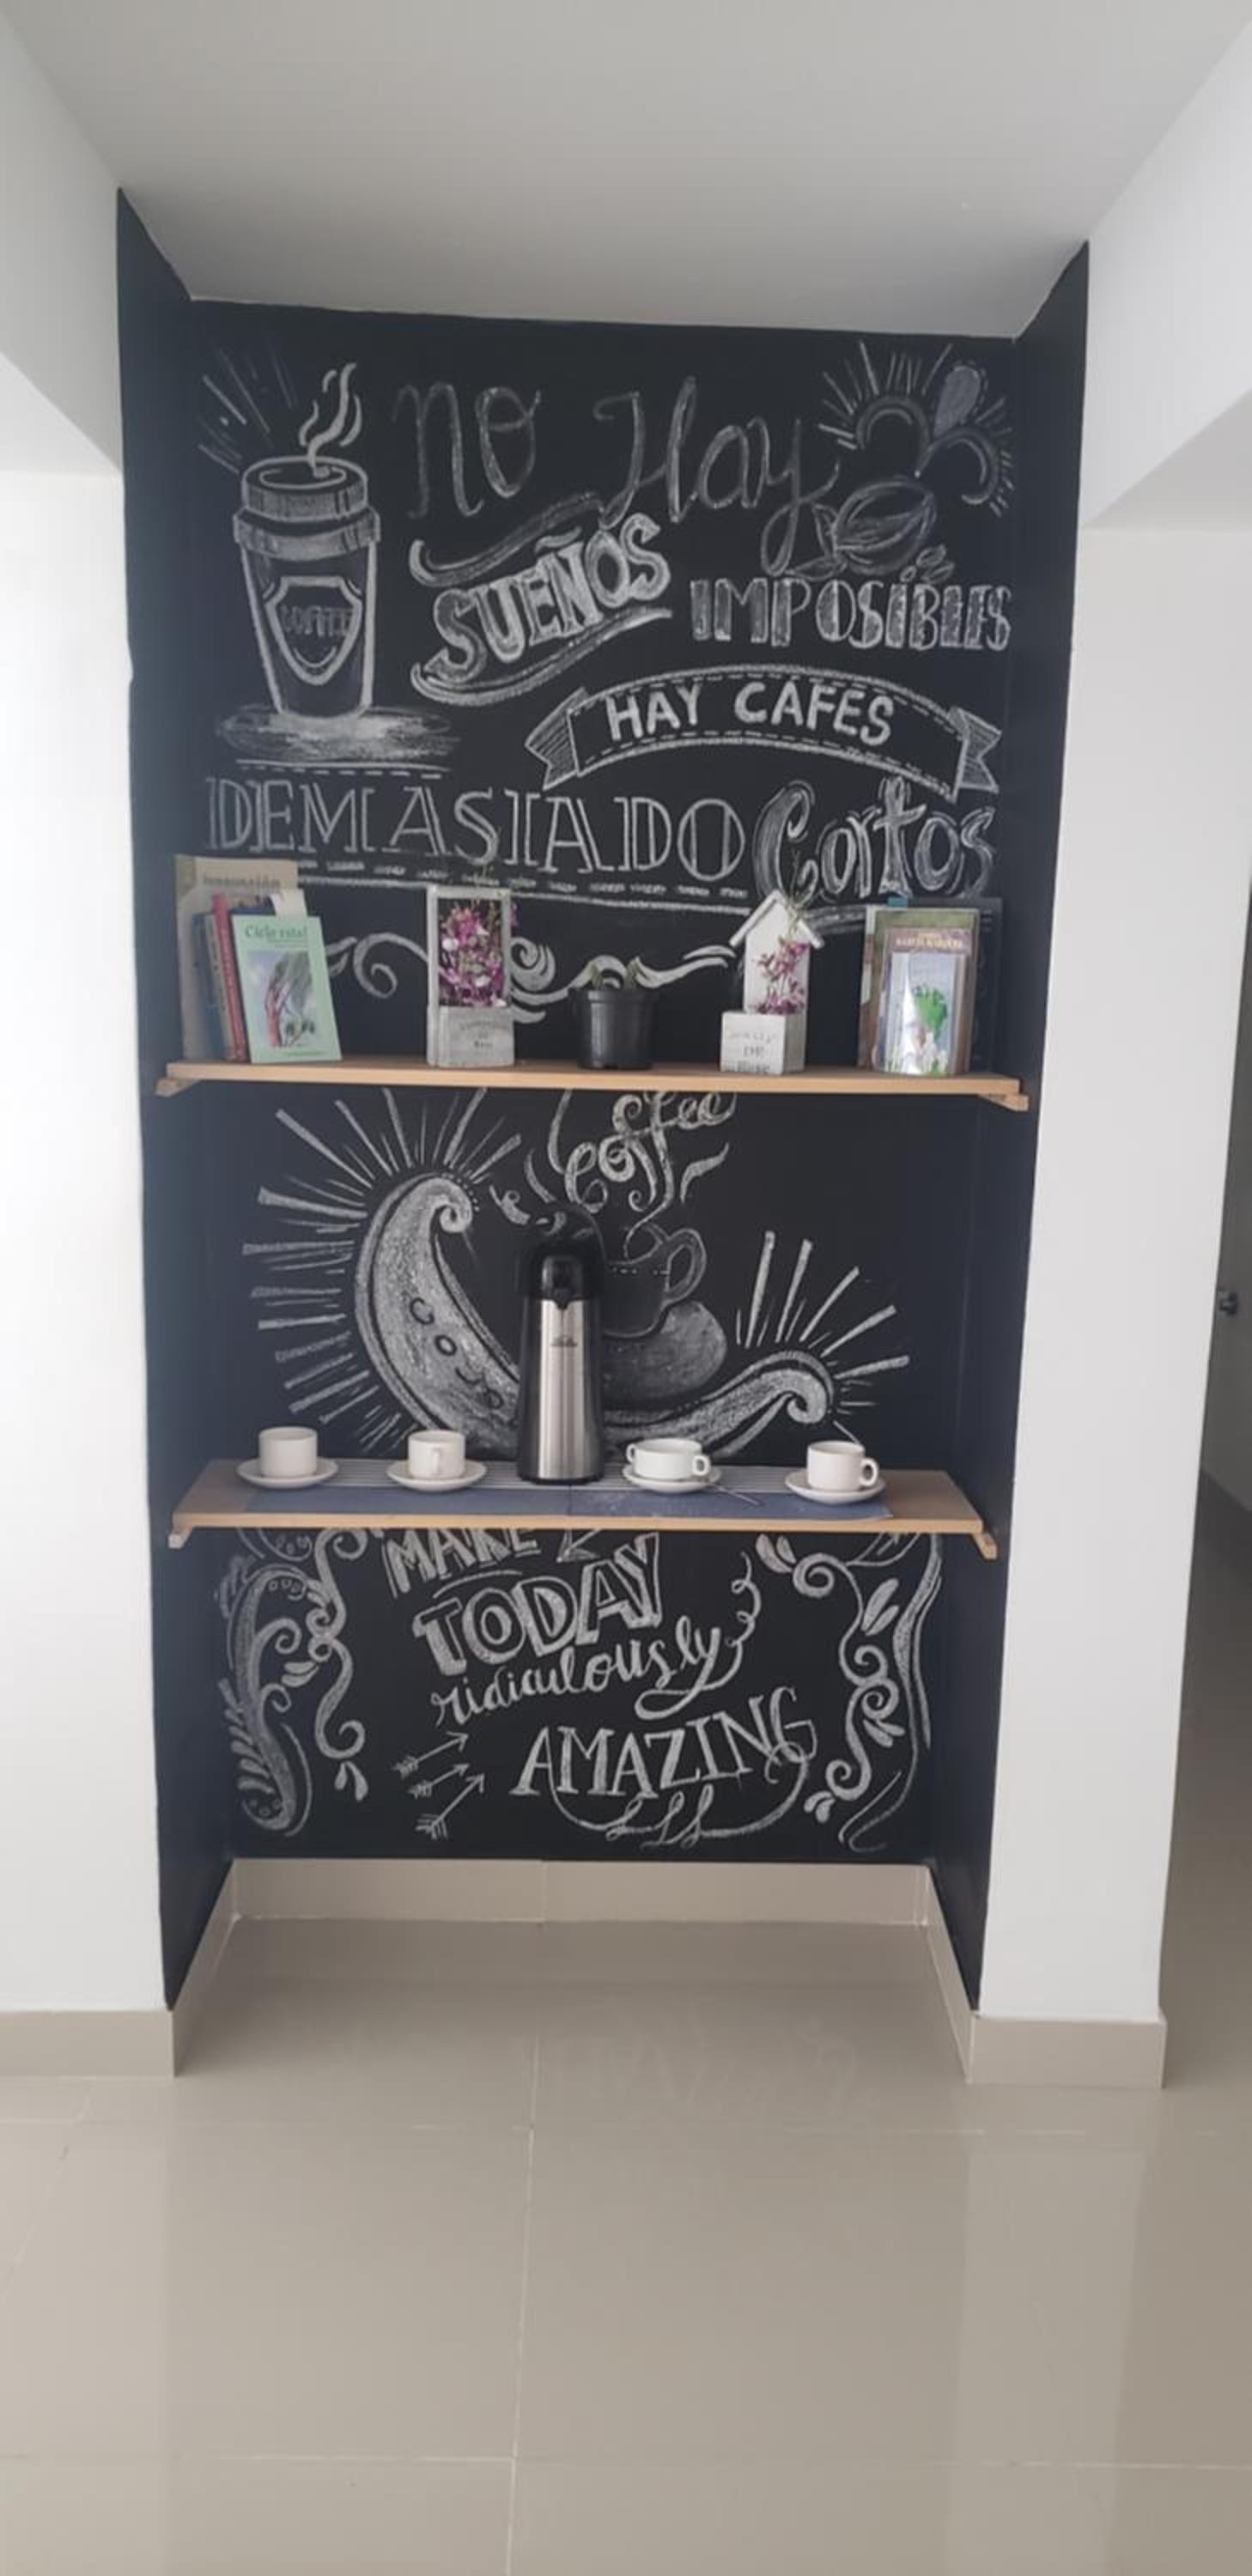 No Hay
SUEÑOS
IMPOSIBLES
HAY CAFES
DEMASIADO Cortos
COFFEE
Innovación
Ciclo vital
DE
Coffee
MAKE
TODAY
ridiculously
AMAZING